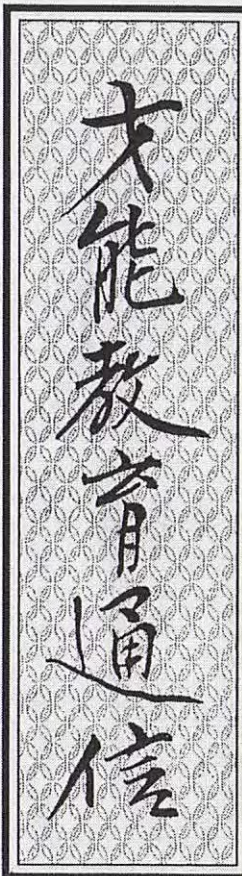 才能教育通信